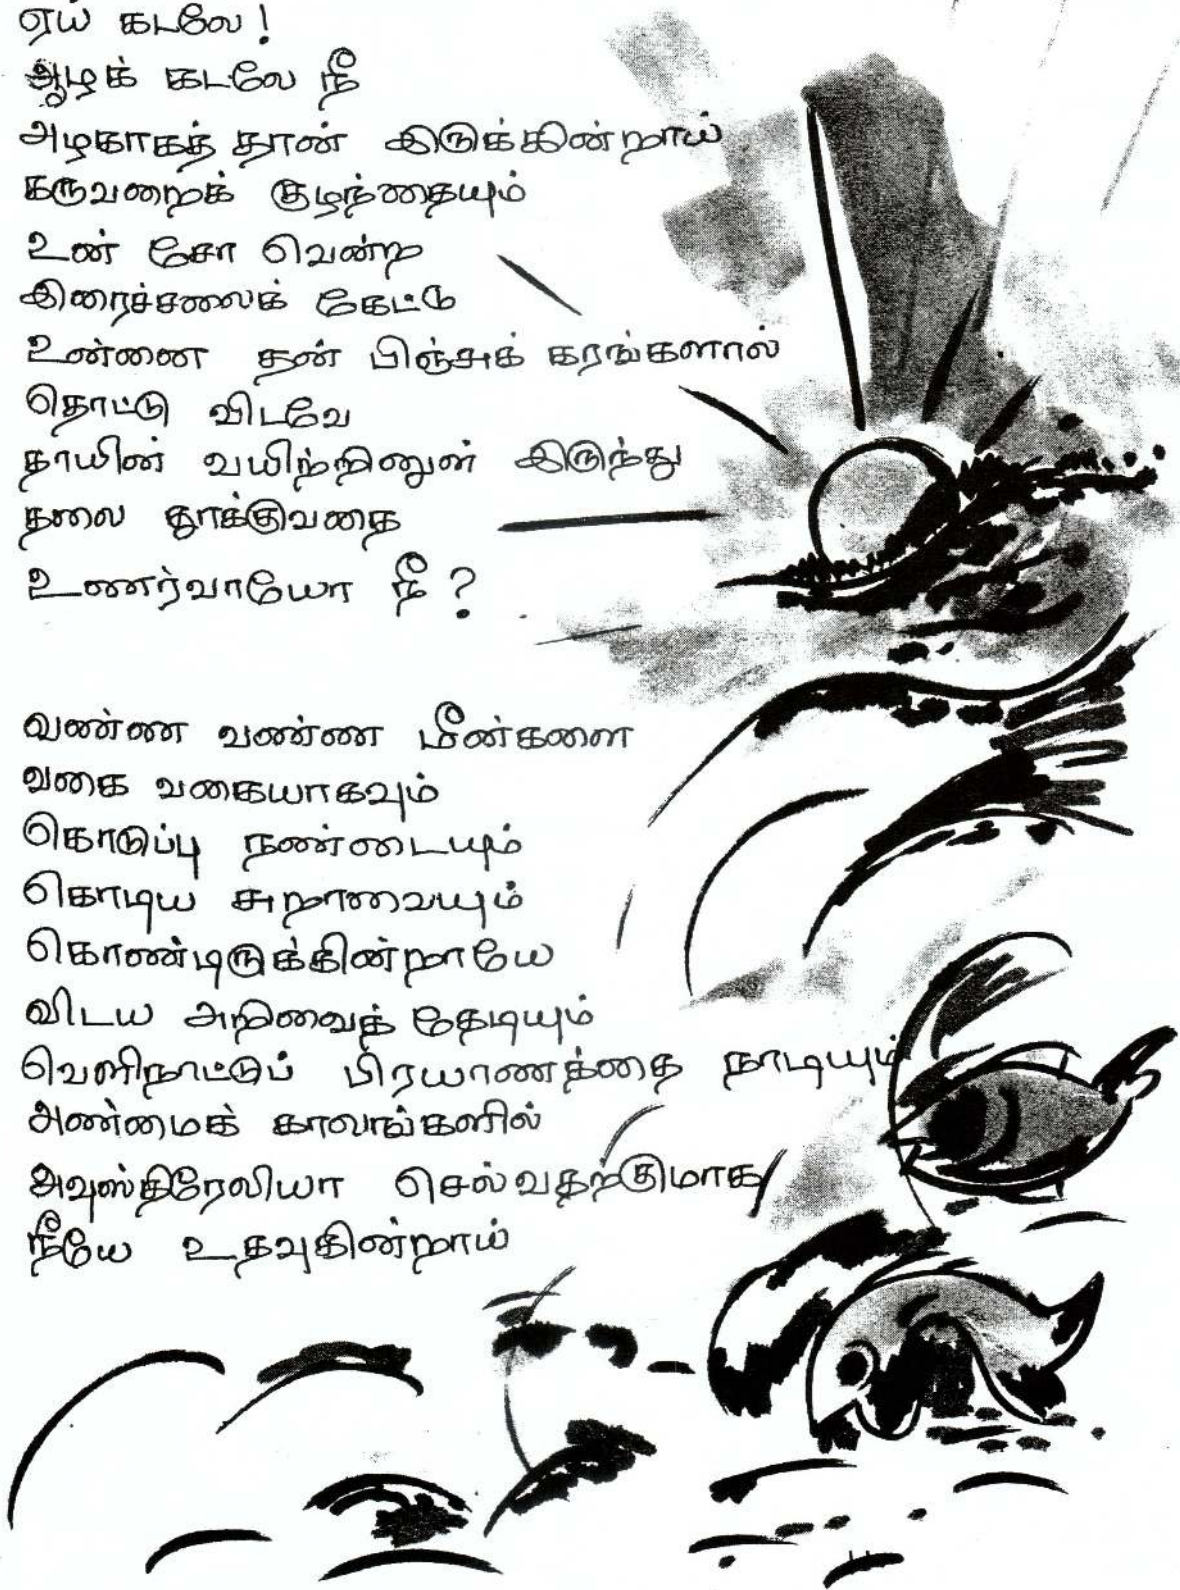 ஏய் கடலே!
ஆழக் கடலே நீ
அழகாகத் தான் இருக்கின்றாய்
கருவறைக் குழந்தையும்
உன் சோ வென்ற
இரைச்சலைக் கேட்டு
உன்னை தன் பிஞ்சுக் கரங்களால்
தொட்டு விடவே
தாயின் வயிற்றினுள் இருந்து
தலை தூக்குவதை
உணர்வாயோ நீ?
வண்ண வண்ண மீன்களை
வகை வகையாகவும்
கொடுப்பு நண்டையும்
கொடிய சுறாவையும்
கொண்டிருக்கின்றாயே
விடய அறிவைத் தேடியும்
வெளிநாட்டுப் பிரயாணத்தை நாடியும்
அண்மைக் காலங்களில்
அவுஸ்திரேலியா செல்வதற்குமாக
நீயே உதவுகின்றாய்